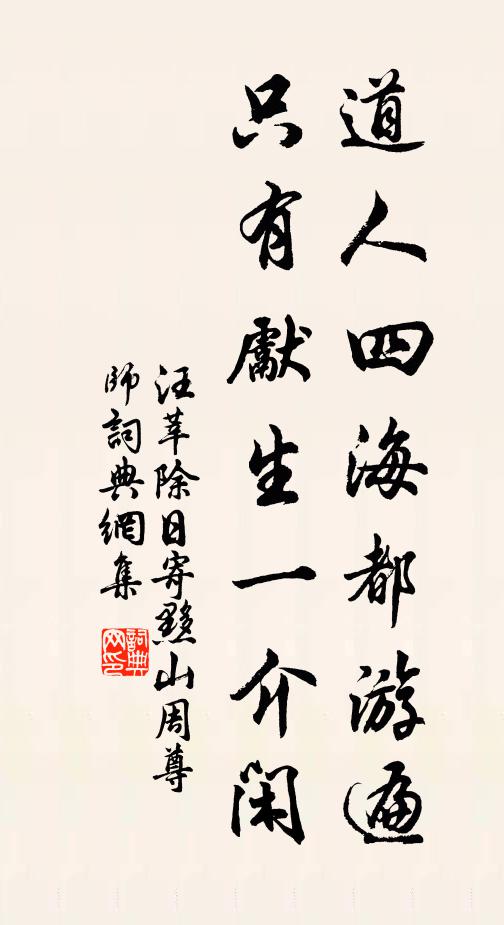 道人四海都游遍
只有獻生一介閑
汪莘除日寄黟山周尊
師詞典網集
詞典
网印